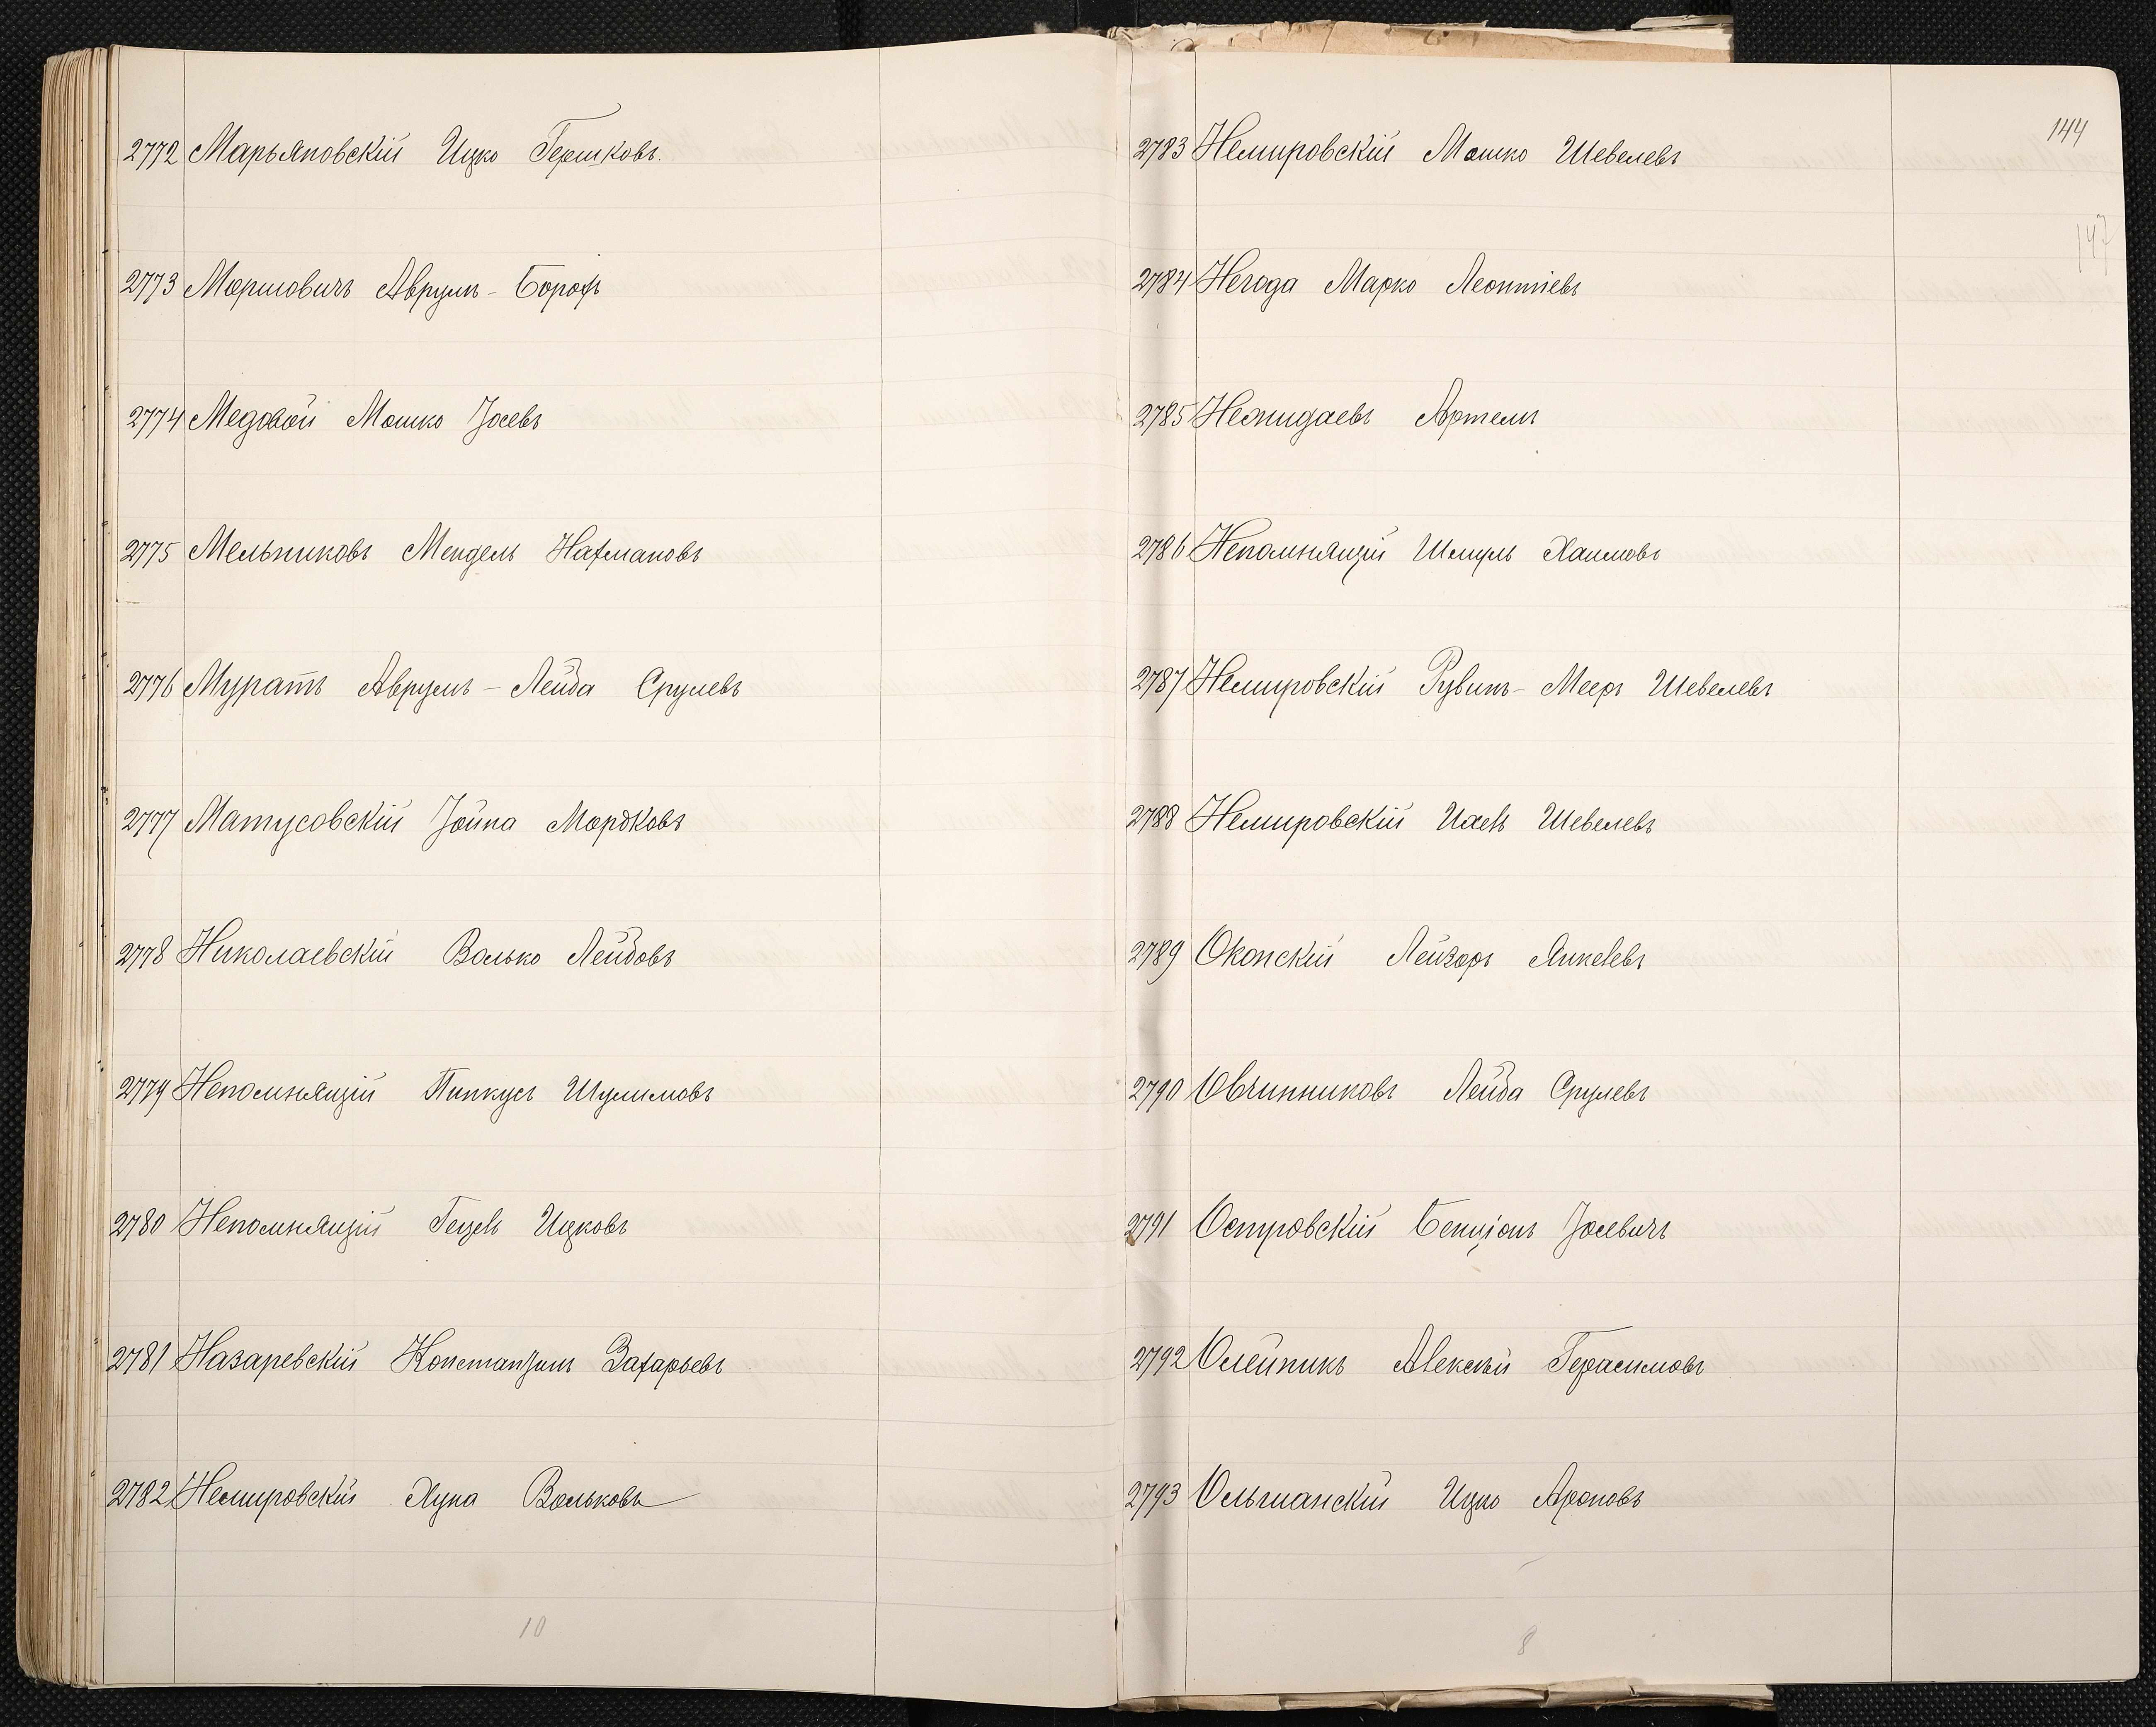 2772 Марьяновскій Ицко Гершковъ.
2773 Моршовичъ Аврумъ-Борохъ
2774 Медовой Мошко Іосевъ
2775 Мельниковъ Мендель Нахмановъ
2776 Муратъ Аврумъ-Лейба Срулевъ
2777 Матусовскій Іойна Мордковъ
2778 Николаевскій Волько Лейбовъ
2779 Непомнящій Пинкусъ Шулимовъ
2780 Непомнящій Гецель Ицковъ
2781 Назаревскій Константинъ Захарьевъ
2782 Немировскій Хуна Вольковъ
10
144
147
2783 Немировскій Мошко Шевелевъ
2784 Негода Марко Леонтіевъ
2785 Нежидаевъ Артемъ
2786 Непомнящій Шмуль Хаимовъ
2787 Немировскій Рувинъ-Мееръ Шевелевъ
2788 Немировскій Шевелевъ
2789 Оконскій Лейзоръ Янкелевъ
2790 Овчинниковъ Лейба Срулевъ
2791 Островскій Бенціонъ Іосевичъ
2792 Олейникъ Алексѣй Герасимовъ
2793 Ольшанскій Ицко Ароновъ
8